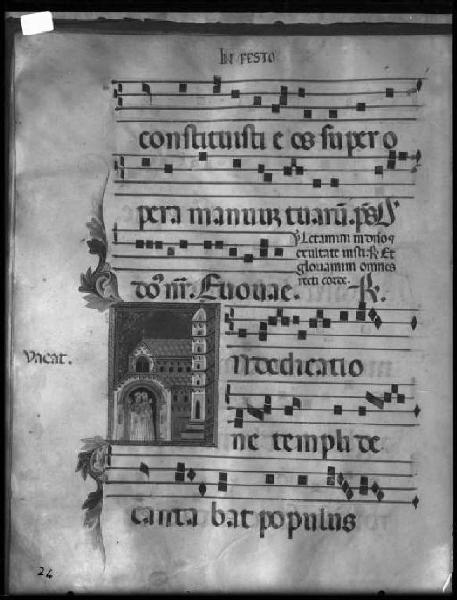 IN FESTO
constituisti e os super o
pera manuum tuarum. ps
℣ Letamini in dño ⁊
exultate iusti. ℟ Et
gloriamini omnes
recti corde.
dõs nr̃. Euouae. ℟.
Vacat.
N dedicatio
ne templi de
canta bat populus
24